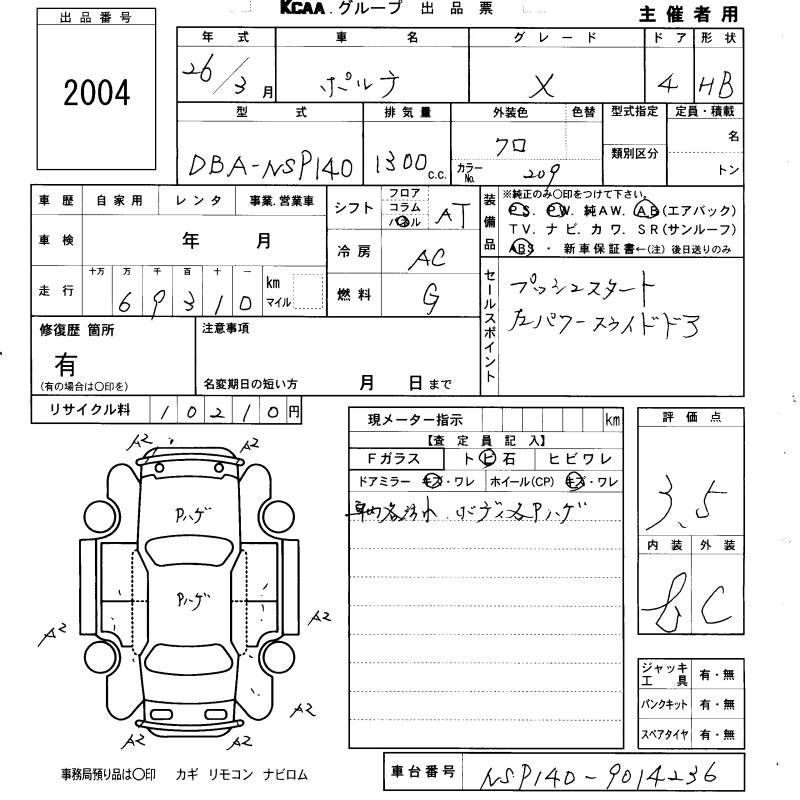 KCAA.グループ 出品票 主催者用
出品番号
2004
年式 車名 グレード ドア 形状
26/3月 ポルテ X 4 HB
型式 排気量 外装色 色替 型式指定 定員・積載
DBA-NSP140 1300c.c. クロ カラーNo. 209 類別区分 名 トン
車歴 自家用 レンタ 事業.営業車
車検 年 月
走行 十万 万 千 百 十 一
69310 km マイル
シフト フロア コラム パネル AT
冷房 AC
燃料 G
装備品 ※純正のみ〇印をつけて下さい。
PS. PW. 純AW. AB(エアバック)
TV. ナビ. カワ. SR(サンルーフ)
ABS ・ 新車保証書←(注) 後日送りのみ
セールスポイント
プッシュスタート
左パワースライドドア
修復歴 箇所
有
(有の場合は〇印を)
注意事項
名変期日の短い方 月 日まで
リサイクル料 10210円
現メーター指示 km
【査定員記入】
Fガラス トビ石 ヒビワレ
ドアミラー キズ・ワレ ホイール(CP) キズ・ワレ
車内各汚れ ボディ各Pハゲ
評価点
3.5
内装 外装
b C
A2 A2
Pハゲ
Pハゲ
A2 A2
A2
A2 A2
ジャッキ工具 有・無
パンクキット 有・無
スペアタイヤ 有・無
事務局預り品は〇印 カギ リモコン ナビロム
車台番号 NSP140-9014236